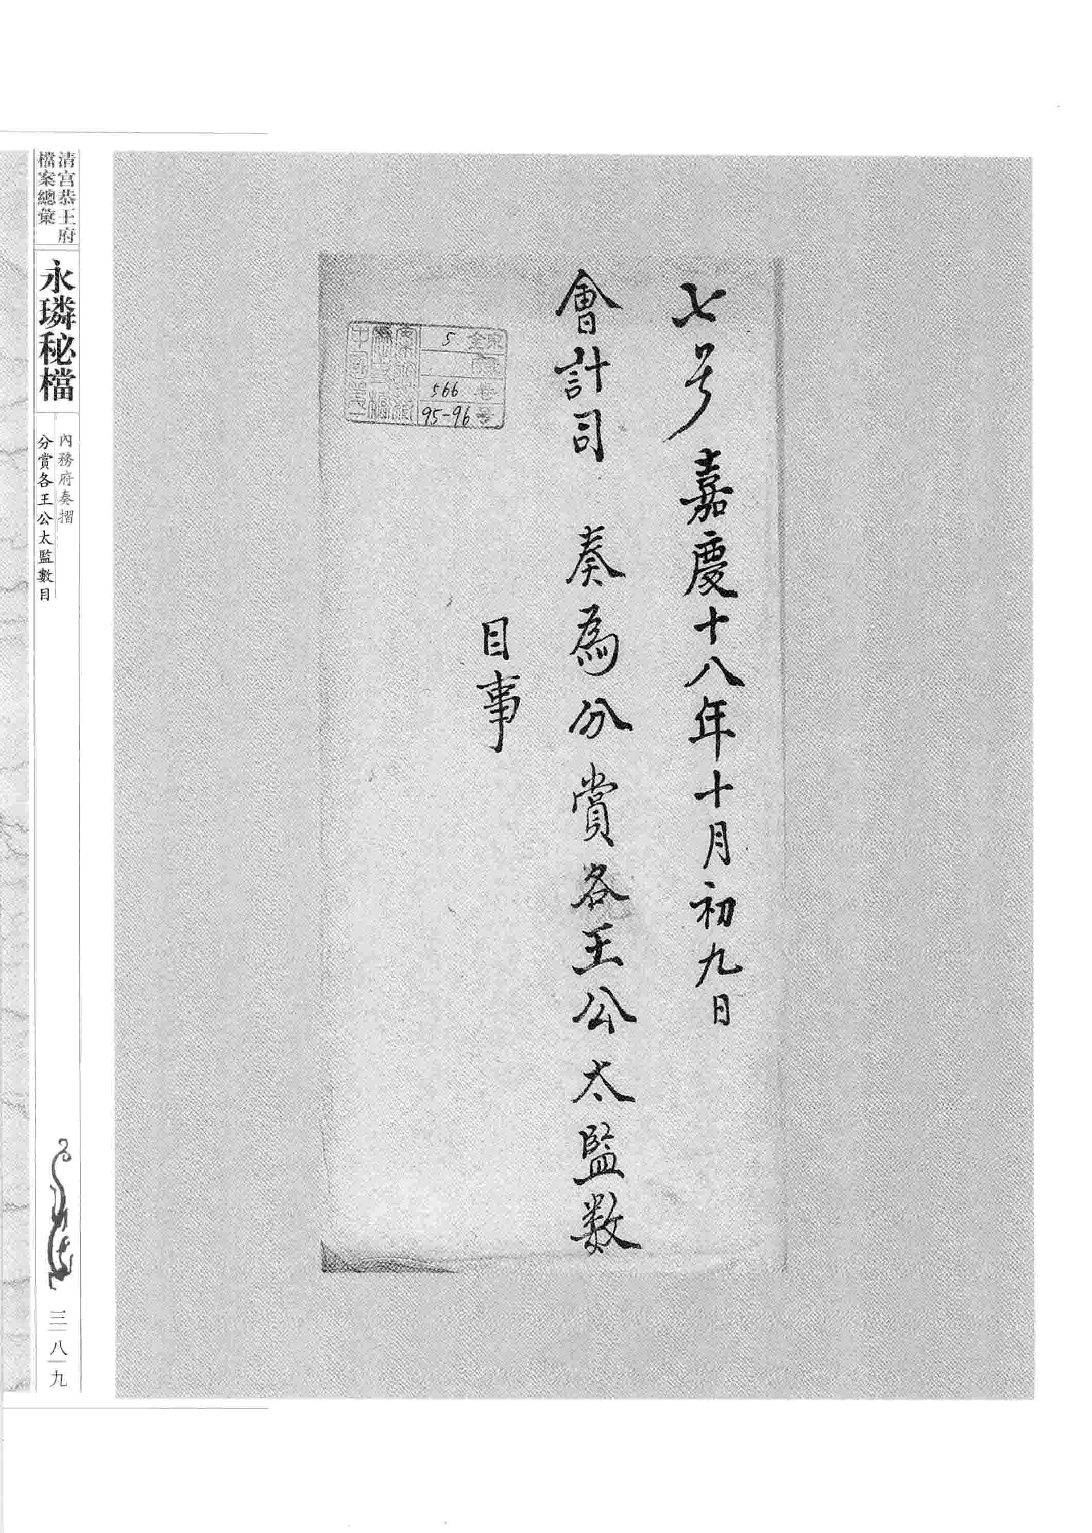 七号 嘉慶十八年十月初九日
會計司 奏為分賞各王公太監数
目事
5
566
95-96
清宮恭王府
檔案總彙
永璘秘檔
內務府奏摺
分賞各王公太監數目
三八九